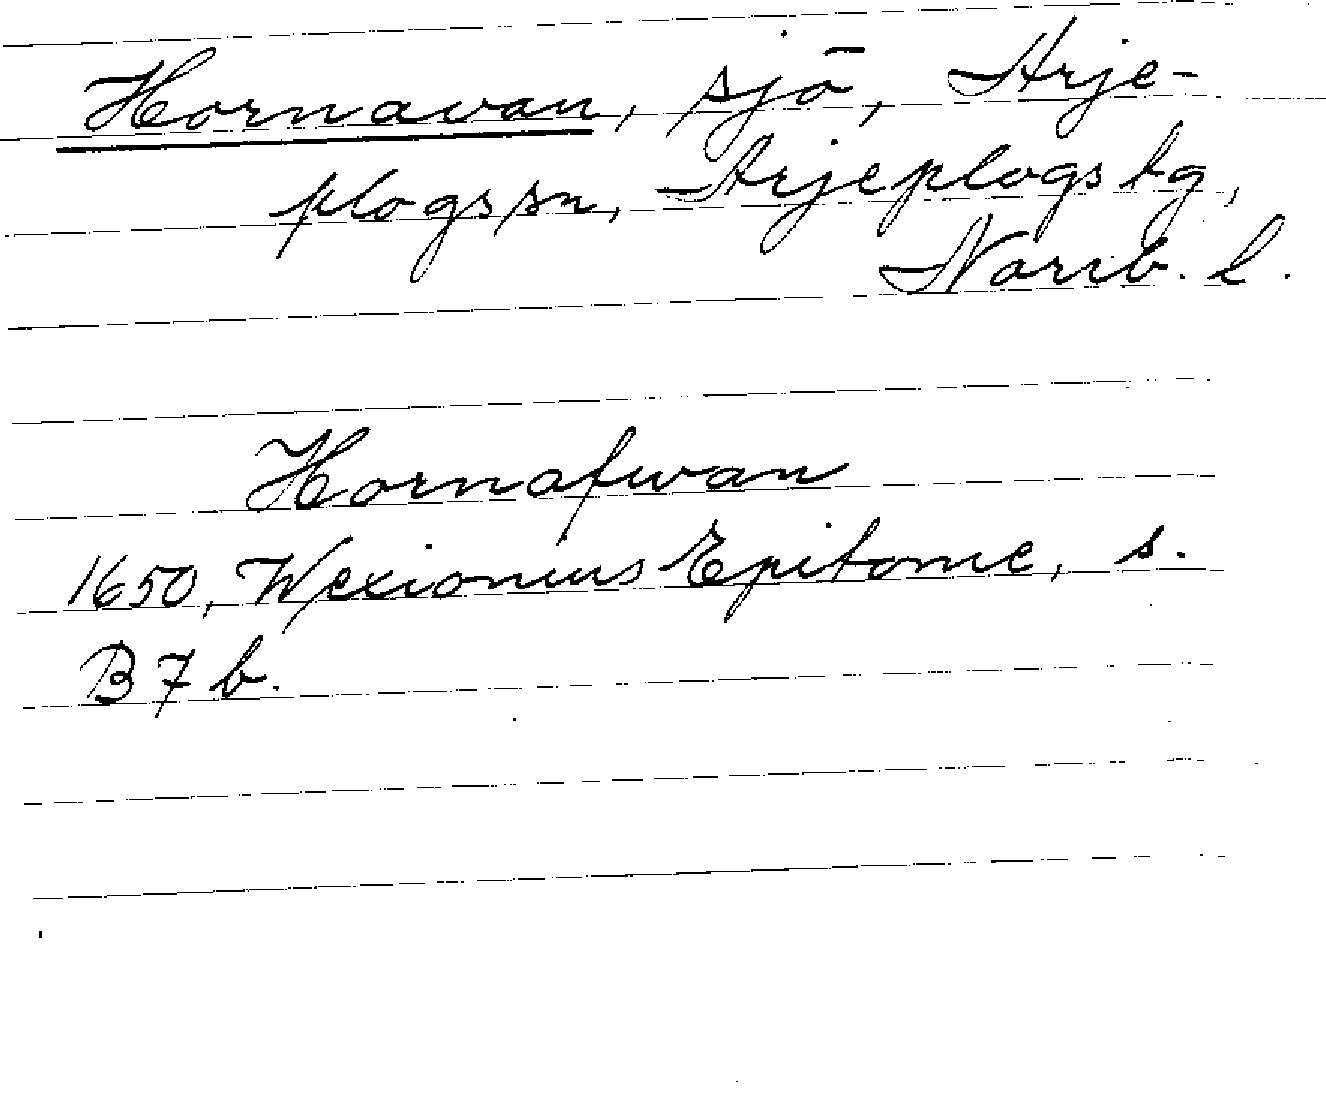 Hornavan, sjö, Arje-
plogs sn, Arjeplogs tg,
Norrb. l.
Hornafwan
1650, Wexionius Epitome, s.
B 7 b.